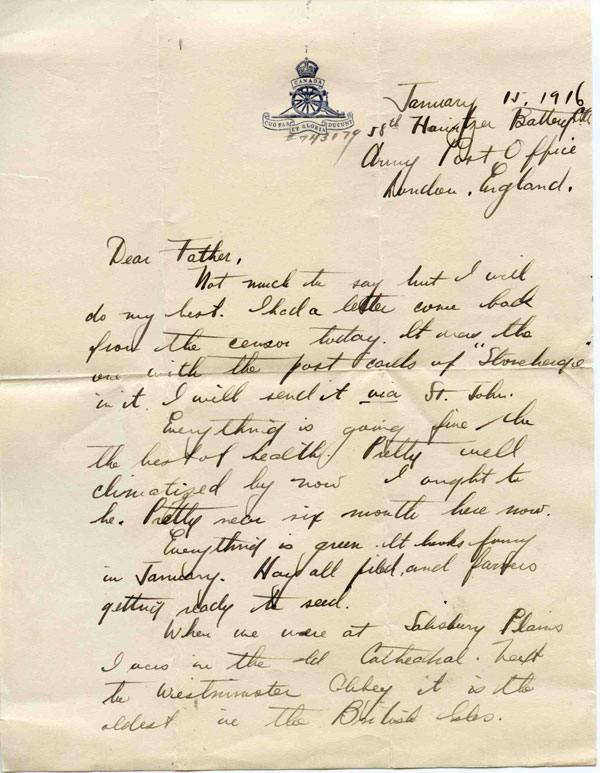 CANADA
QUO FAS ET GLORIA DUCUNT
January 15, 1916
58th Howitzer Battery
Army Post Office
London, England.
Dear Father,
Not much to say but I will
do my best. I had a letter come back
from the censor today. It was the
one with the post cards of "Stonehenge"
in it. I will send it via St. John.
Everything is going fine the
the best of health. Pretty well
climatized by now I ought to
be. Pretty near six month here now.
Everything is green. It looks funny
in January. Hay all piled, and farmers
getting ready to seed.
When we were at Salisbury Plains
I was in the old Cathedral. Next
to Westminster Abbey it is the
oldest in the British Isles.